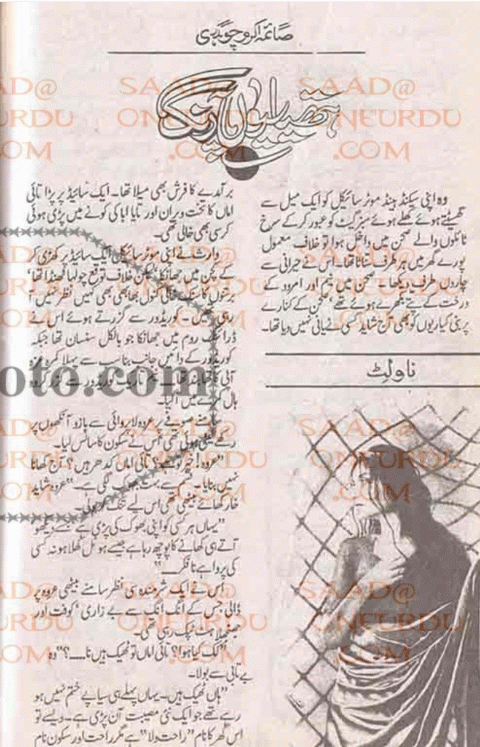 صائمہ اکرم چوہدری
ہتھیلیوں پہ رنگ
وہ اپنی سیکنڈ ہینڈ موٹر سائیکل کو ایک میل سے
گھسیٹتے ہوئے کھلے ہوئے سبز گیٹ کو عبور کر کے سرخ
ٹائلوں والے صحن میں داخل ہوا تو خلاف معمول
پورے گھر میں ہر طرف سناٹا تھا۔ اس نے حیرانی سے
چاروں طرف دیکھا۔ صحن میں نیم اور امرود کے
درخت کے پتے بکھرے ہوئے تھے، صحن کے کنارے
پر بنی کیاریوں کو بھی آج شاید کسی نے پانی نہیں دیا تھا۔
ناولٹ
برآمدے کا فرش بھی میلا تھا۔ ایک سائیڈ پر پڑا تائی
اماں کا تخت ویران اور تایا ابا کی کونے میں پڑی ہوئی
کرسی بھی خالی تھی۔
وارث نے اپنی موٹر سائیکل ایک سائیڈ پر کھڑی کر
کے کچن میں جھانکا لیکن خلاف توقع چولہا ٹھنڈا تھا
برتنوں کا سنک خالی کنول بھابھی بھی کہیں نظر نہیں آ
رہی تھیں۔ کوریڈور سے گزرتے ہوئے اس نے
ڈرائنگ روم میں جھانکا جو بالکل سنسان تھا جبکہ
کوریڈور کے دائیں جانب سب سے پہلا کمرہ
ہال کمرے میں آگیا۔
سامنے عروہ لاپروائی سے بازو آنکھوں پر
رکھے لیٹی ہوئی تھی اس نے سکون کا سانس لیا۔
"عروہ! خیر تو ہے، تائی اماں کدھر ہیں؟ آج کھانا
نہیں بنایا۔ قسم سے بہت بھوک لگی ہے۔" عروہ شاید
خار کھائے بیٹھی تھی اس لیے
"یہاں ہر کسی کو اپنی بھوک کی پڑی ہے
آتے ہی کھانے کا پوچھ رہا ہے جیسے ہوٹل کھلا ہو نہ کسی
کی پروا ہے نا فکر"
اس نے ایک شرمندہ سی نظر سامنے بیٹھی عروہ پر
ڈالی جس کے انگ انگ سے بے زاری، کوفت اور
جھنجھلاہٹ ٹپک رہی تھی۔
"کک کیا ہوا؟ تائی اماں تو ٹھیک ہیں نا.....؟" وہ
بے تابی سے بولا۔
"ہاں ٹھیک ہیں۔ یہاں پہلے ہی سیاپے ختم نہیں ہو
رہے تھے جو ایک نئی مصیبت آن پڑی ہے۔ ویسے تو
اس گھر کا نام "راحت ولا" ہے مگر راحت اور سکون نام
SAAD@
ONEURDU
.COM
oto.com